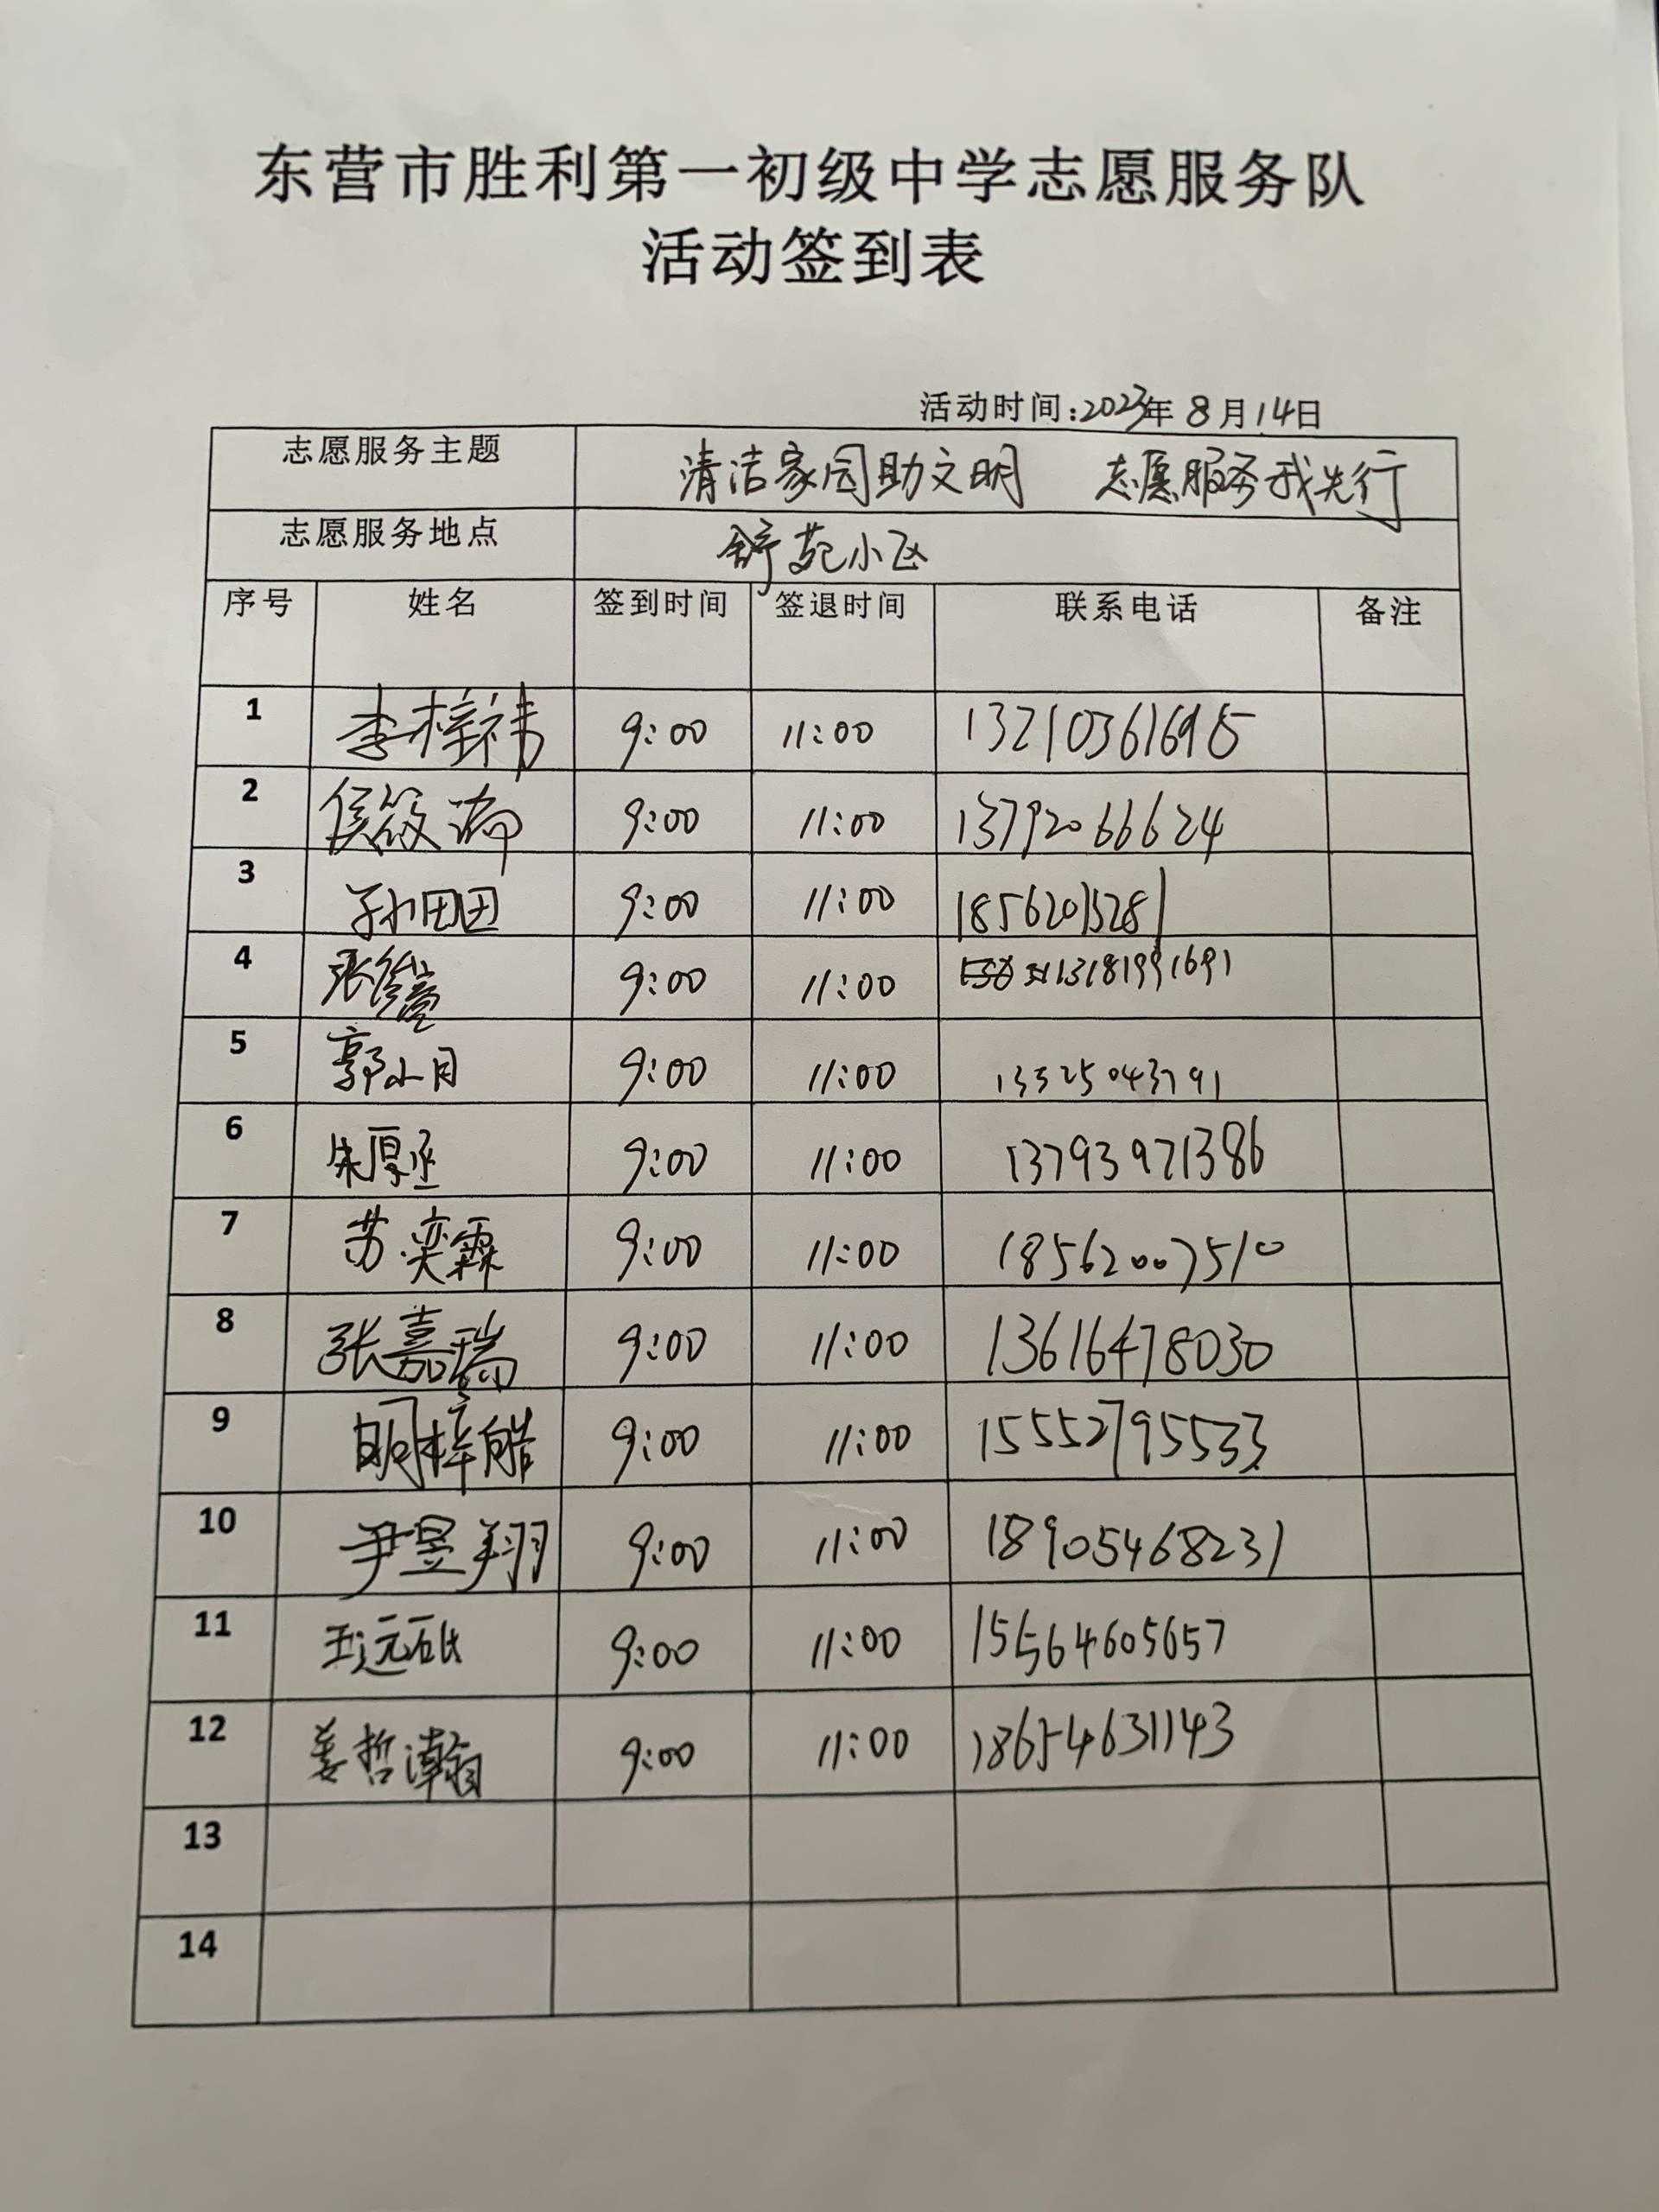 东营市胜利第一初级中学志愿服务队
活动签到表
活动时间:2023年8月14日
志愿服务主题 清洁家园助文明 志愿服务我先行
志愿服务地点 舒苑小区
序号 姓名 签到时间 签退时间 联系电话 备注
1 李梓祎 9:00 11:00 13210361695
2 侯筱 9:00 11:00 13792066624
3 孙田田 9:00 11:00 18562013281
4 张 9:00 11:00 13181991691
5 郭小月 9:00 11:00 13325043791
6 朱厚丞 9:00 11:00 13793971386
7 苏奕霖 9:00 11:00 18562007510
8 张嘉瑞 9:00 11:00 13616478030
9 明梓皓 9:00 11:00 15552795533
10 尹昱翔 9:00 11:00 18905468231
11 王远 9:00 11:00 15564605657
12 姜哲瀚 9:00 11:00 18654631143
13
14